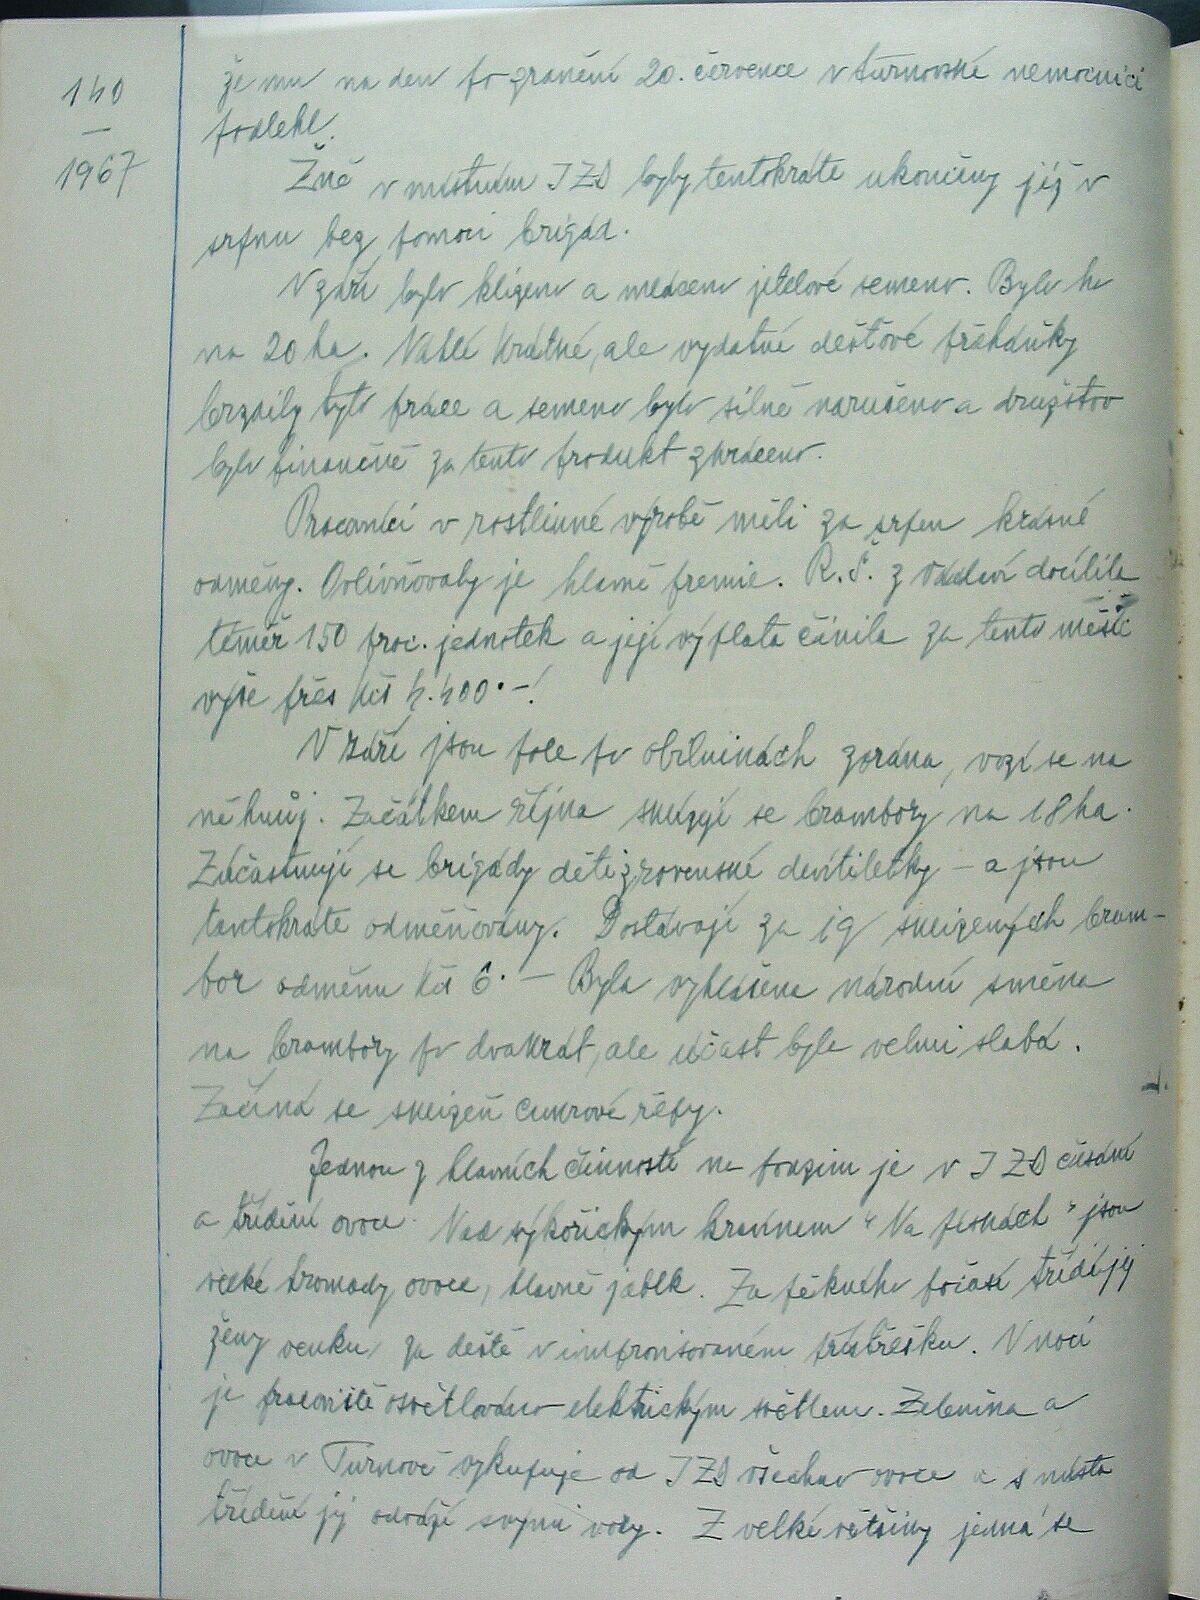 140
—
1967
že mu na den po zranění 20. července v turnovské nemocnici
podlehl.
Žně v místním JZD byly tentokráte ukončeny již v
srpnu bez pomoci brigád.
V září bylo klizeno a mláceno jetelové semeno. Bylo ho
na 20 ha. Náhlé krátné, ale vydatné dešťové přeháňky
brzdily tyto práce a semeno bylo silně narušeno a družstvo
bylo finančně za tento produkt zkráceno.
Pracovníci v rostlinné výrobě měli za srpen krásné
odměny. Ovlivňovaly je hlavně premie. R. Š. z docílila
téměř 150 prac. jednotek a její výplata činila za tento měsíc
výše přes Kčs 4.400.–!
V září jsou pole po obilninách zorána, vozí se na
ně hnůj. Začátkem října sklízejí se brambory na 18 ha.
Zúčastňují se brigády dětí z rovenské devítiletky – a jsou
tentokráte odměňovány. Dostávají za 1q sklizených bram-
bor odměnu Kčs 6.– Byla vyhlášena národní směna
na brambory po dvakrát, ale účast byla velmi slabá.
Začíná se sklizeň cukrové řepy.
Jednou z hlavních činností na podzim je v JZD česání
a třídění ovoce. Nad sýkořickým kravínem "Na pískách" jsou
velké hromady ovoce, hlavně jablk. Za pěkného počasí třídí jej
ženy venku, za deště v improvisovaném přístřešku. V noci
je pracoviště osvětlováno elektrickým světlem. Zelenina a
ovoce v Turnově vykupuje od JZD všechno ovoce a s místa
třídění jej odváží svými vozy. Z velké většiny jedná se